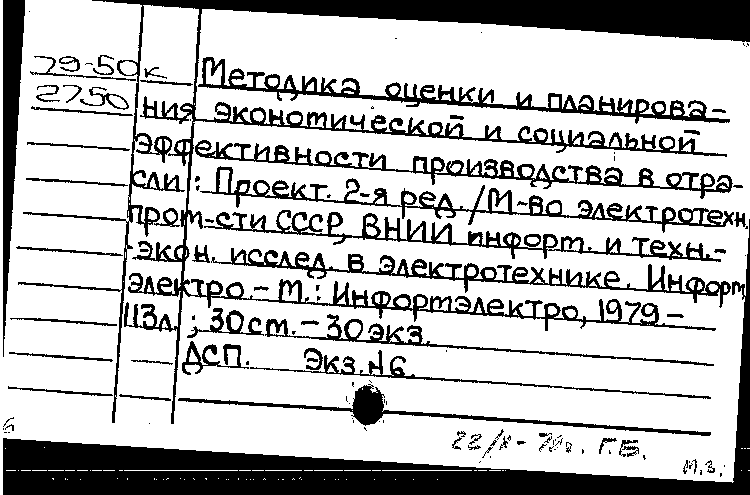 79-50к Методика оценки и планирова-
2750 ния экономической и социальной
эффективности производства в отра-
сли: Проект. 2-я ред. / М-во электротехн.
пром-сти СССР, ВНИИ информ. и техн.-
экон. исслед. в электротехнике. Информ
электро. - М.: Информэлектро, 1979. -
113л.; 30 см. - 30 экз.
ДСП. Экз. №6.
Г.Б.
М.З.